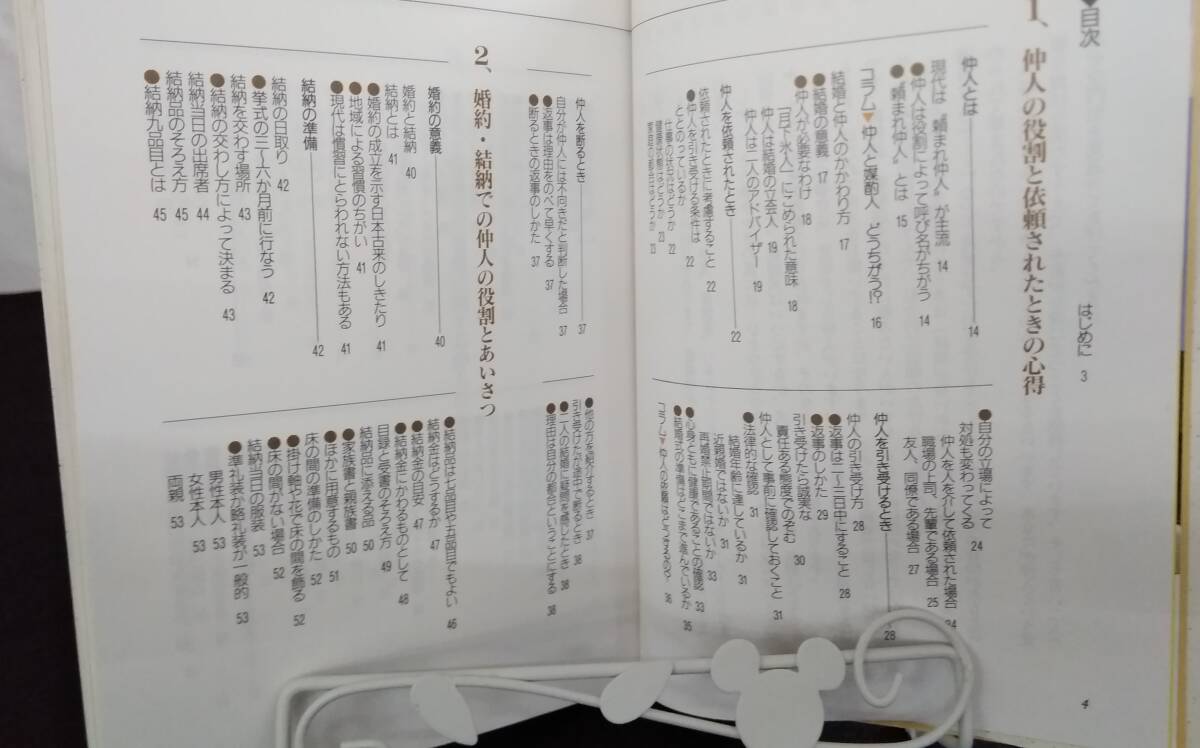 ◆目次
はじめに 3
1、仲人の役割と依頼されたときの心得
仲人とは 14
現代は〝頼まれ仲人〟が主流 14
●仲人は役割によって呼び名がちがう 14
●〝頼まれ仲人〟とは 15
コラム▼仲人と媒酌人 どうちがう!? 16
結婚と仲人のかかわり方 17
●結婚の意義 17
●仲人が必要なわけ 18
「月下氷人」にこめられた意味 18
仲人は結婚の立会人 19
仲人は二人のアドバイザー 19
仲人を依頼されたとき 22
依頼されたときに考慮すること 22
●仲人を引き受ける条件は
ととのっているか 22
仕事の状況はどうか 22
健康状態はどうか 23
家庭の都合はどうか 23
●自分の立場によって
対処も変わってくる 24
仲人を人を介して依頼された場合 24
職場の上司、先輩である場合 25
友人、同僚である場合 27
仲人を引き受けるとき 28
仲人の引き受け方 28
●返事は二~三日中にすること 28
●返事のしかた 29
引き受けたら誠実な
責任ある態度でのぞむ 30
仲人として事前に確認しておくこと 31
●法律的な確認 31
結婚年齢に達しているか 31
近親婚ではないか 31
再婚禁止期間ではないか 33
●心身ともに健康であることの確認 33
●結婚式の準備はどこまで進んでいるか 35
コラム▼仲人の依頼はどうするの? 36
仲人を断るとき 37
自分が仲人には不向きだと判断した場合 37
●返事は理由をのべて早くする 37
●断るときの返事のしかた 37
●他の方を紹介するとき 37
引き受けたが途中で断るとき 38
●二人の結婚に疑問を感じたとき 38
●理由は自分の都合ということにする 38
2、婚約・結納での仲人の役割とあいさつ
婚約の意義 40
婚約と結納 40
結納とは 41
●婚約の成立を示す日本古来のしきたり 41
●地域による習慣のちがい 41
●現代は慣習にとらわれない方法もある 41
結納の準備 42
結納の日取り 42
●挙式の三~六か月前に行なう 42
結納を交わす場所 43
●結納の交わし方によって決まる 43
結納当日の出席者 44
結納品のそろえ方 45
●結納九品目とは 45
●結納品は七品目や五品目でもよい 46
結納金はどうするか 47
●結納金の目安 47
●結納金にかわるものとして 48
目録と受書のそろえ方 49
結納品に添える品 50
●家族書と親族書 50
●ほかに用意するもの 51
床の間の準備のしかた 52
●掛け軸や花で床の間を飾る 52
●床の間がない場合 52
結納当日の服装 53
●準礼装か略礼装が一般的 53
男性本人 53
女性本人 53
両親 53
4